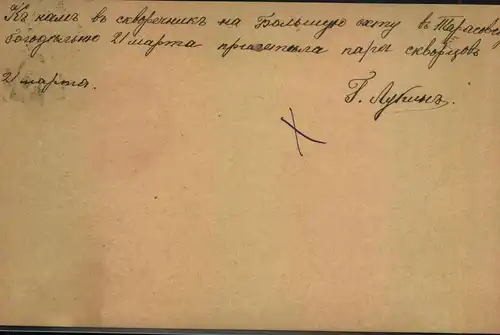 Къ намъ въ скворечникъ на Большую охту въ Тарасовс
богодѣльню 21 марта прилетѣла пара скворцовъ
21 марта.
Г. Лукинъ.